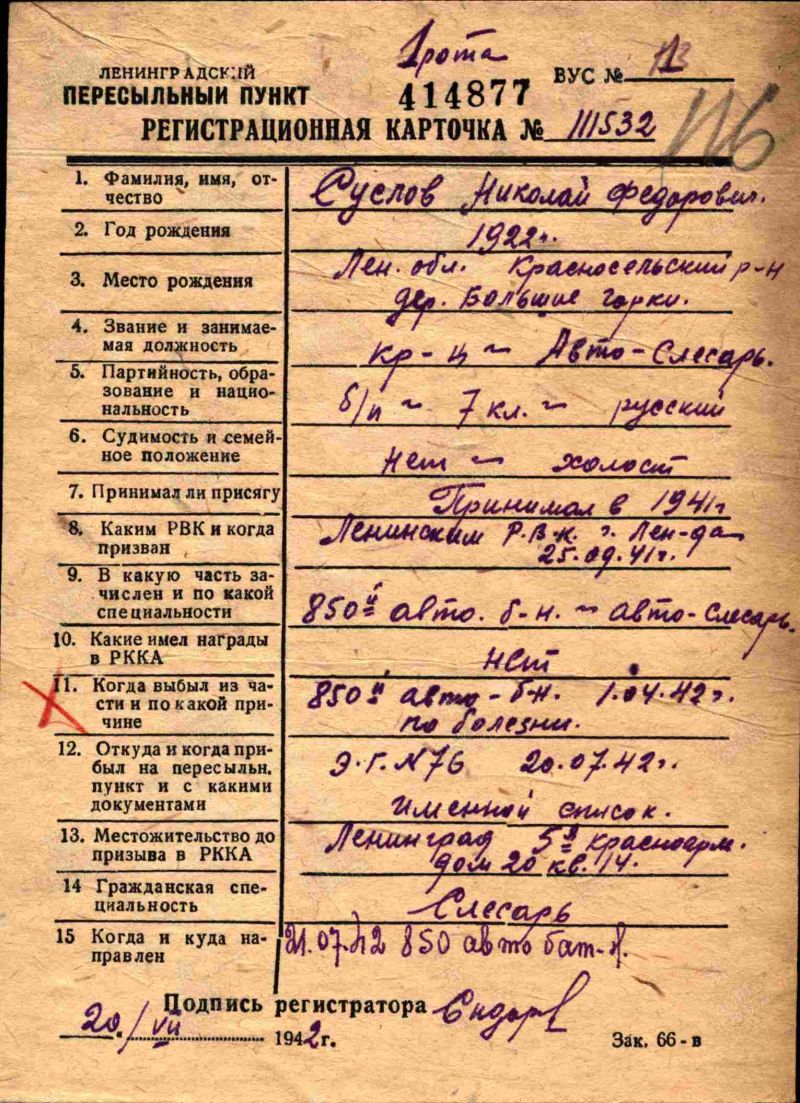 1 рота
ЛЕНИНГРАДСКИЙ
ПЕРЕСЫЛЬНЫЙ ПУНКТ
414877
ВУС №
РЕГИСТРАЦИОННАЯ КАРТОЧКА № 111532
116
1. Фамилия, имя, от-
чество
Суслов Николай Федорович.
2. Год рождения
1922 г.
3. Место рождения
Лен. обл. Красносельский р-н
дер. Большие горки.
4. Звание и занимае-
мая должность
кр-ц ~ Авто-Слесарь.
5. Партийность, обра-
зование и нацио-
нальность
б/п ~ 7 кл. ~ русский
6. Судимость и семей-
ное положение
нет ~ холост
7. Принимал ли присягу
Принимал в 1941 г
8. Каким РВК и когда
призван
Ленинским Р.В.К. г. Лен-да
25.09.41 г.
9. В какую часть за-
числен и по какой
специальности
850й авто. б-н. ~ авто-слесарь.
10. Какие имел награды
в РККА
нет
11. Когда выбыл из ча-
сти и по какой при-
чине
850й авто-б-н. 1.04.42 г.
по болезни.
12. Откуда и когда при-
был на пересыльн.
пункт и с какими
документами
Э.Г. N 76 20.07.42 г.
именной список.
13. Местожительство до
призыва в РККА
Ленинград 5я красноарм.
дом 20 кв. 14.
14 Гражданская спе-
циальность
Слесарь
15 Когда и куда на-
правлен
21.07.42 850 авто бат-н.
Подпись регистратора
20/VII 1942 г.
Зак. 66-в